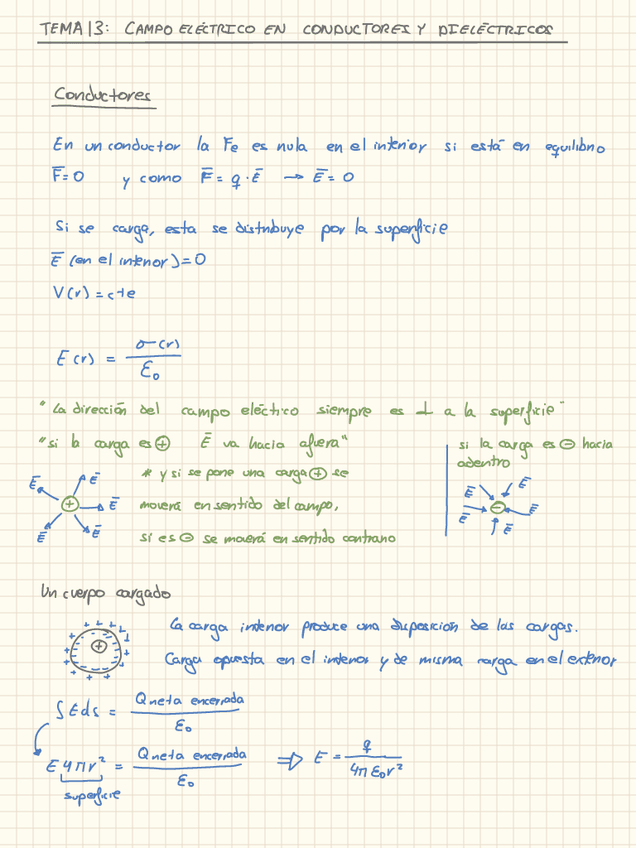 TEMA 13: CAMPO ELÉCTRICO EN CONDUCTORES Y DIELÉCTRICOS
Conductores
En un conductor la Fe es nula en el interior si está en equilibrio
F̅=0 y como F̅ = q · E̅ → E̅ = 0
Si se carga, esta se distribuye por la superficie
E̅ (en el interior) = 0
V(r) = cte
E(r) = σ(r) / ε₀
"La dirección del campo eléctrico siempre es ⊥ a la superficie"
"si la carga es ⊕ E̅ va hacia afuera"
* y si se pone una carga ⊕ se
moverá en sentido del campo,
si es ⊖ se moverá en sentido contrario
E̅ E̅ E̅ E̅ E̅
+
si la carga es ⊖ hacia
adentro
E̅ E̅ E̅ E̅ E̅
−
Un cuerpo cargado
La carga interior produce una disposición de las cargas.
Carga opuesta en el interior y de misma carga en el exterior
∫Eds = Qneta encerrada / ε₀
E 4πr² = Qneta encerrada / ε₀ ⇒ E = q / 4πε₀r²
superficie